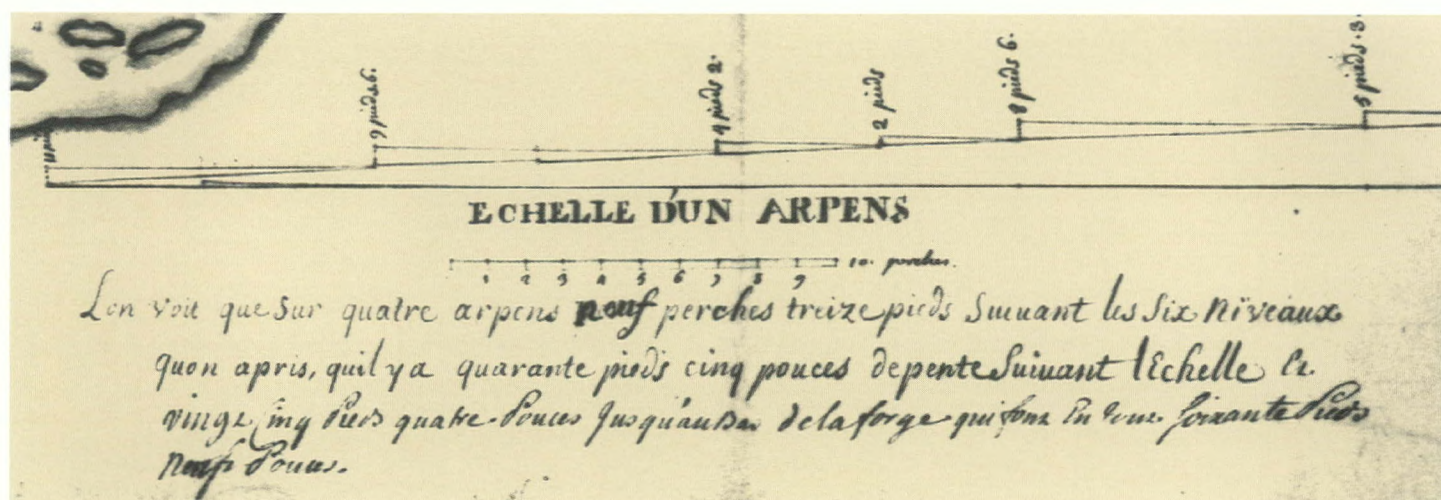 9 pieds 6.
4 pieds 2.
2 pieds
8 pieds 6.
5 pieds 3.
ECHELLE D'UN ARPENS
1 2 3 4 5 6 7 8 9 10 perches.
Lon voit que Sur quatre arpens neuf perches treize pieds Suiuant les Six Niveaux
quon apris, quil y a quarante pieds cinq pouces de pente Suiuant lEchelle Et
vingt Cinq Pieds quatre Pouces Jusqu'au Bas de la forge qui font En tout Soixante Pieds
Neuf Pouces.